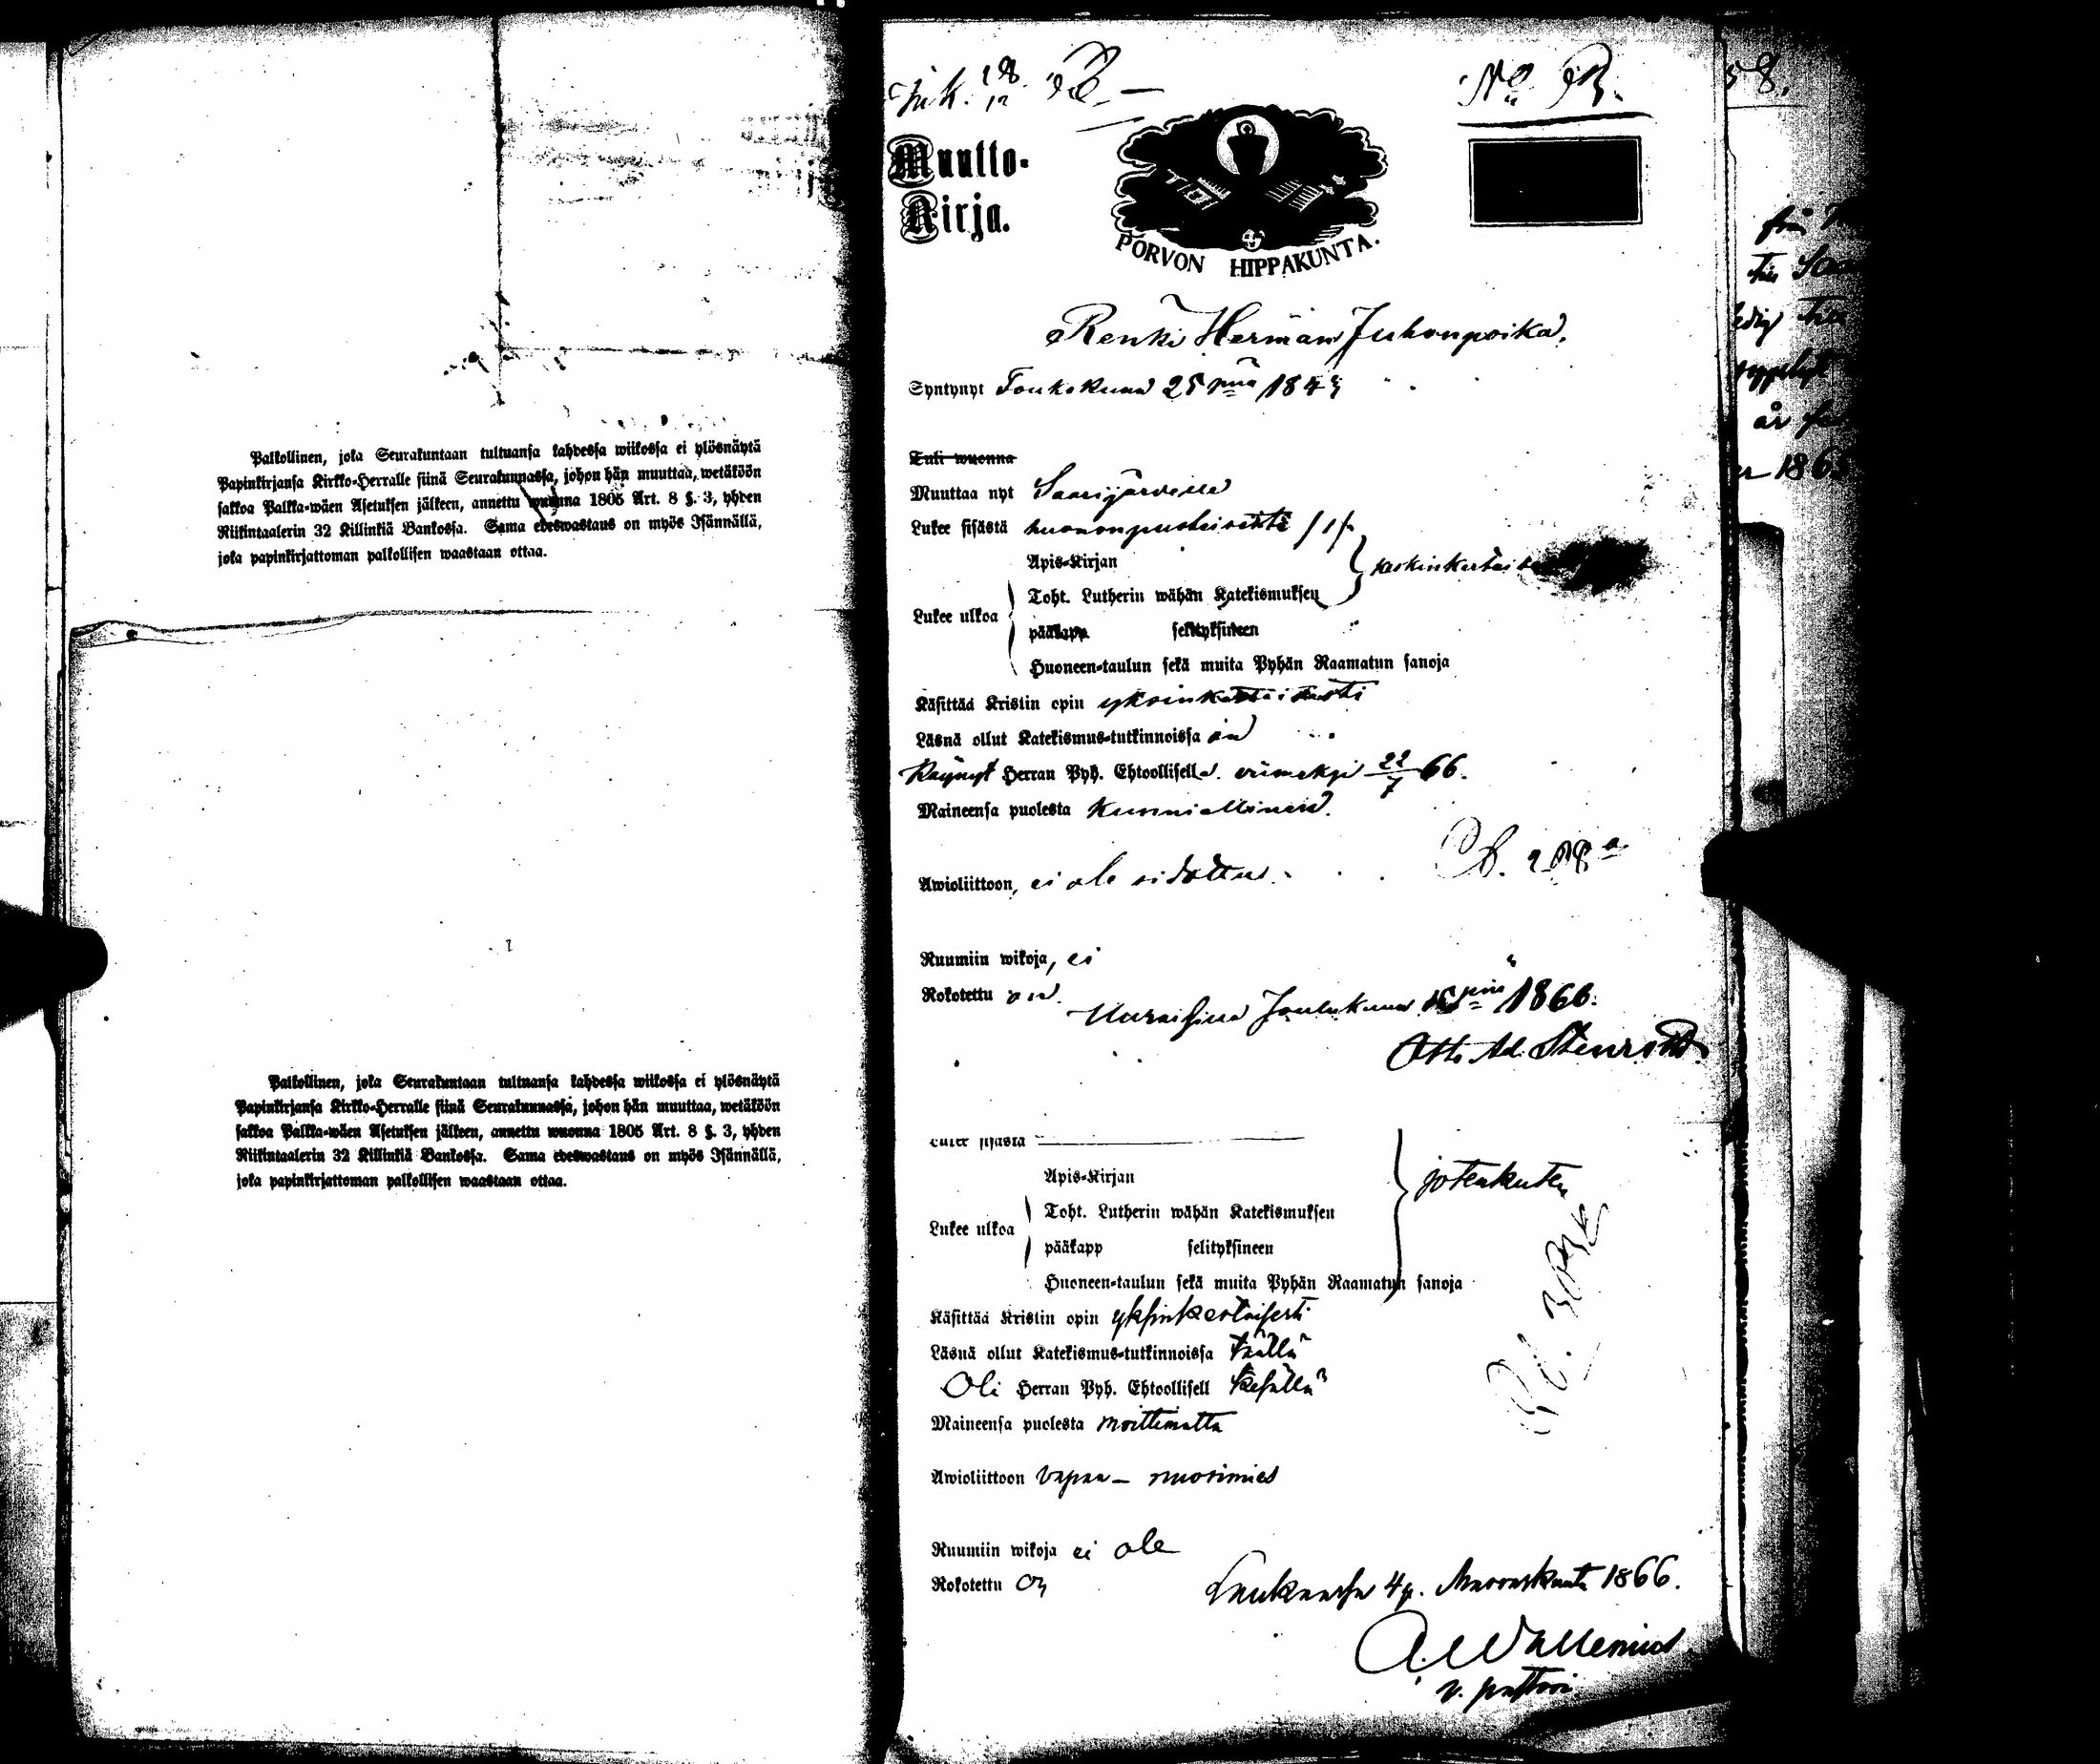 Palkollinen, joka Seurakuntaan tultuansa kahdessa wiikossa ei ylösnäytä
Papinkirjansa Kirkko-Herralle siinä Seurakunnassa, johon hän muuttaa, wetäköön
sakkoa Palkka-wäen Asetuksen jälkeen, annettu wuonna 1805 Art. 8 §. 3, yhden
Riikintaalerin 32 Killinkiä Bankossa. Sama edeswastaus on myös Isännällä,
joka papinkirjattoman palkollisen waastaan ottaa.
Palkollinen, joka Seurakuntaan tultuansa kahdessa wiikossa ei ylösnäytä
Papinkirjansa Kirkko-Herralle siinä Seurakunnassa, johon hän muuttaa, wetäköön
sakkoa Palkka-wäen Asetuksen jälkeen, annettu wuonna 1805 Art. 8 §. 3, yhden
Riikintaalerin 32 Killinkiä Bankossa. Sama edeswastaus on myös Isännällä,
joka papinkirjattoman palkollisen waastaan ottaa.
Muutto-
Kirja.
PORVON HIPPAKUNTA.
Renki Herman Juhonpoika.
Syntynyt Toukokuun 25 1843
Tuli wuonna
Muuttaa nyt Saarijärvelle
Lukee sisästä huononpuoleisesti /1/
Apis-Kirjan
Toht. Lutherin wähän Katekismuksen
Lukee ulkoa
pääkapp selityksineen
Huoneen-taulun sekä muita Pyhän Raamatun sanoja
Käsittää Kristin opin yksinkertaisesti
Läsnä ollut Katekismus-tutkinnoissa on
Käynyt Herran Pyh. Ehtoollisella viimeksi 22/7 66.
Maineensa puolesta kunniallinen.
Awioliittoon, ei ole sidottu.
Ruumiin wikoja, ei
Rokotettu on.
Uuraisissa Joulukuun 1866.
Otto Ad. Stenroth
Lukee sisästä
Apis-Kirjan jotenkuten
Toht. Lutherin wähän Katekismuksen
Lukee ulkoa
pääkapp selityksineen
Huoneen-taulun sekä muita Pyhän Raamatun sanoja
Käsittää Kristin opin yksinkertaisesti
Läsnä ollut Katekismus-tutkinnoissa täällä
Oli Herran Pyh. Ehtoollisell kesällä
Maineensa puolesta moittimatta
Awioliittoon vapaa - nuorimies
Ruumiin wikoja ei ole
Rokotettu on
Laukaassa 4 p. Marraskuuta 1866.
A. Wallenius
v. pastori